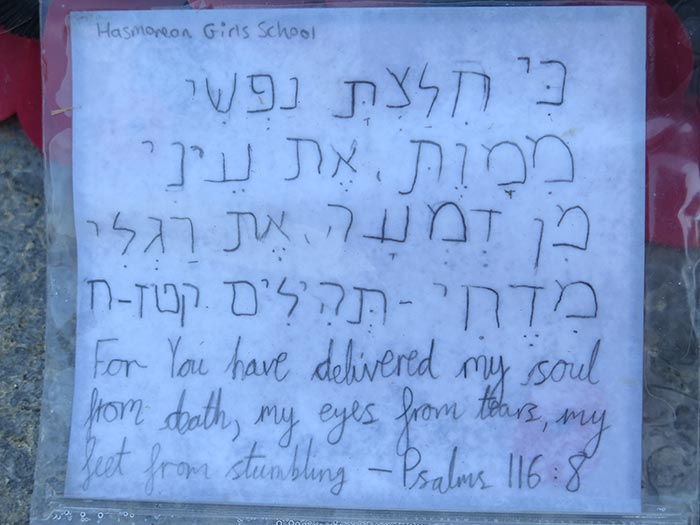 Hasmorean Girls School
כִּי חִלַצִתָּ נַפְשִׁי
מִמָוֶת, אֶת עֵינִי
מִן דִמְעָה, אֶת רַגְלִי
מִדֶחִי - תְּהִילִים קטז-ח
For You have delivered my soul
from death, my eyes from tears, my
feet from stumbling - Psalms 116:8